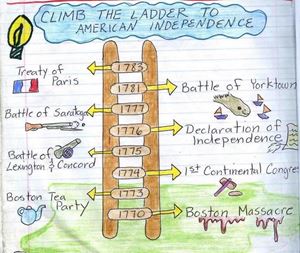 CLIMB THE LADDER TO
AMERICAN INDEPENDENCE
1783
Treaty of
Paris
1781
Battle of Yorktown
1777
Battle of Saratoga
1776
Declaration of
Independence
1775
Battle of
Lexington & Concord
1774
1st Continental Congress
1773
Boston Tea
Party
1770
Boston Massacre